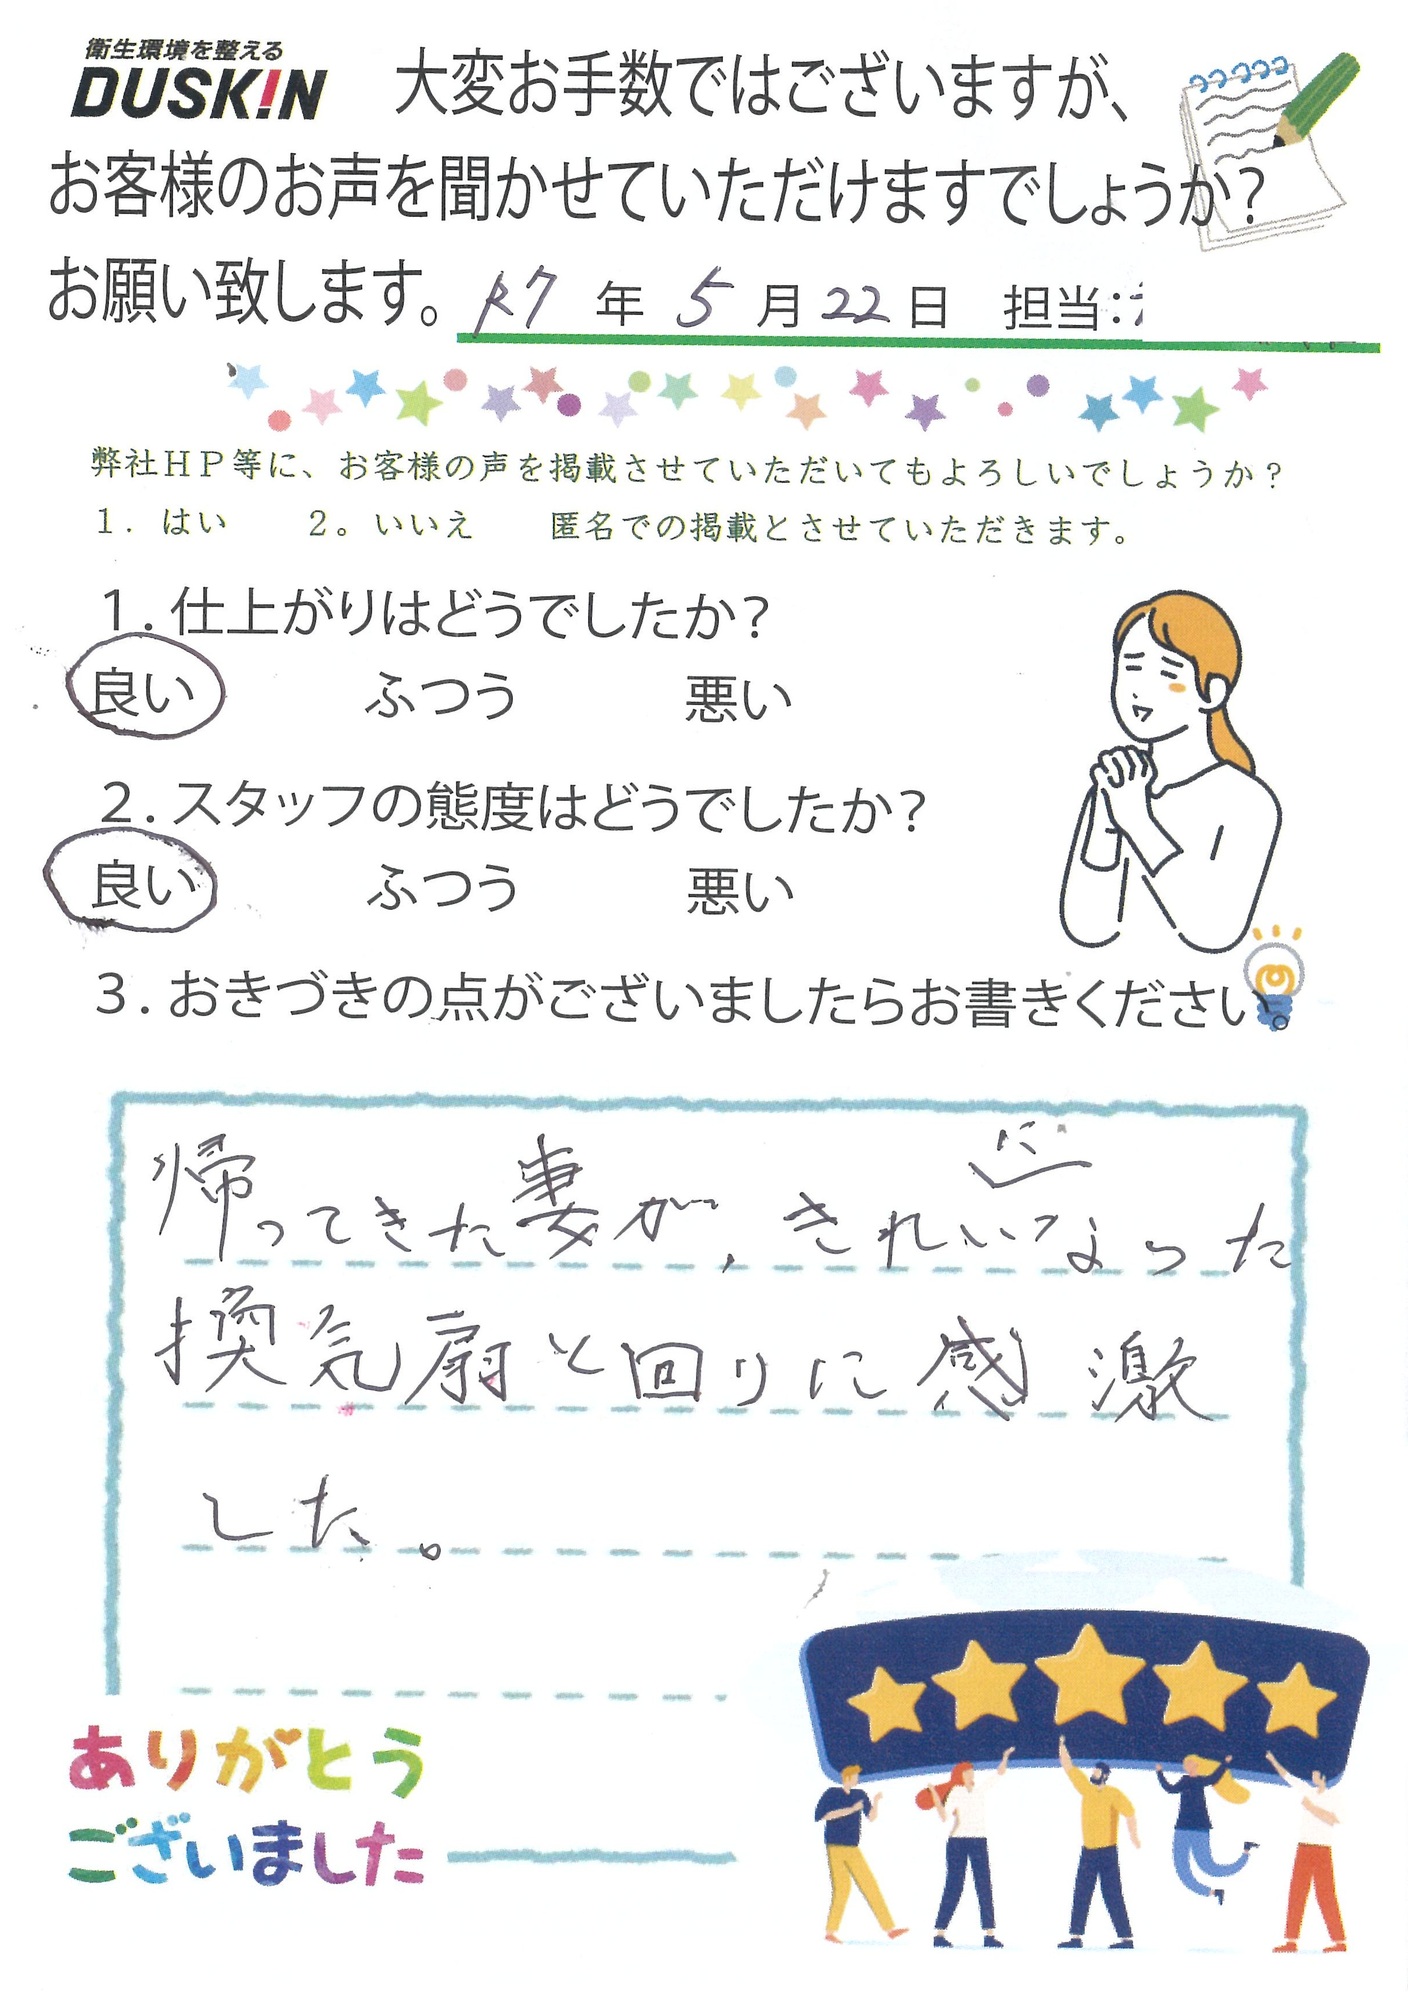 衛生環境を整える
DUSKIN
大変お手数ではございますが、
お客様のお声を聞かせていただけますでしょうか?
お願い致します。 R7 年 5 月 22 日 担当:
弊社HP等に、お客様の声を掲載させていただいてもよろしいでしょうか?
1. はい 2。いいえ 匿名での掲載とさせていただきます。
1. 仕上がりはどうでしたか?
良い ふつう 悪い
2. スタッフの態度はどうでしたか?
良い ふつう 悪い
3. おきづきの点がございましたらお書きください。
帰ってきた妻が、きれいになった
換気扇と回りに感激
した。
ありがとう
ございました